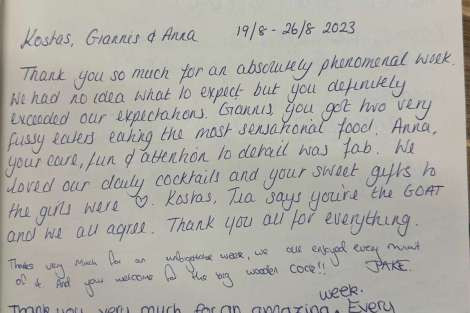 Kostas, Giannis & Anna 19/8 - 26/8 2023
Thank you so much for an absolutely phenomenal week.
We had no idea what to expect but you definitely
exceeded our expectations. Giannis, you got two very
fussy eaters eating the most sensational food. Anna,
your care, fun & attention to detail was fab. We
loved our daily cocktails and your sweet gifts to
the girls were ♡. Kostas, Tia says you're the GOAT
and we all agree. Thank you all for everything.
Thanks very much for an week, we enjoyed every
of it. And you welcome for the big wooden JAKE.
week.
Thank you very much for an amazing. Every